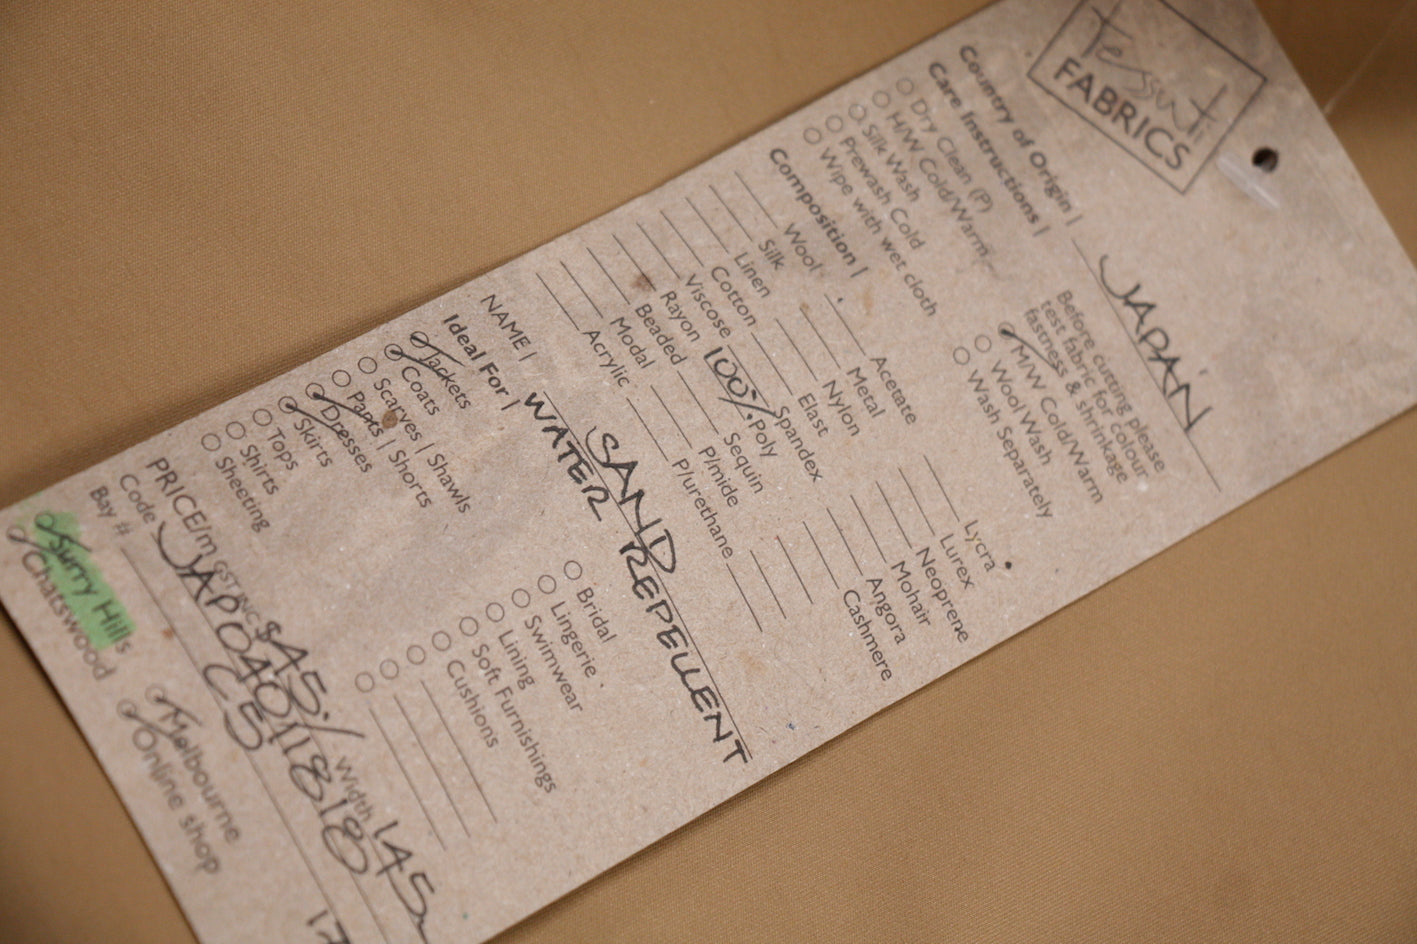 Tessuti
FABRICS
Country of Origin | JAPAN
Care Instructions |
Before cutting please
test fabric for colour
fastness & shrinkage
Dry Clean (P)
H/W Cold/Warm
Silk Wash
Prewash Cold
Wipe with wet cloth
M/W Cold/Warm
Wool Wash
Wash Separately
Composition |
Wool
Silk
Linen
Cotton
Viscose
Rayon
Beaded
Modal
Acrylic
Acetate
Metal
Nylon
Elast
Spandex
100% Poly
Sequin
P/mide
P/urethane
Lycra
Lurex
Neoprene
Mohair
Angora
Cashmere
NAME | SAND
WATER REPELLENT
Ideal For |
Jackets
Coats
Scarves | Shawls
Pants | Shorts
Dresses
Skirts
Tops
Shirts
Sheeting
Bridal
Lingerie
Swimwear
Lining
Soft Furnishings
Cushions
PRICE/m GST INC $45./ Width 145
Code JAP04011818
Bay # C5
Surry Hills
Chatswood
Melbourne
Online shop